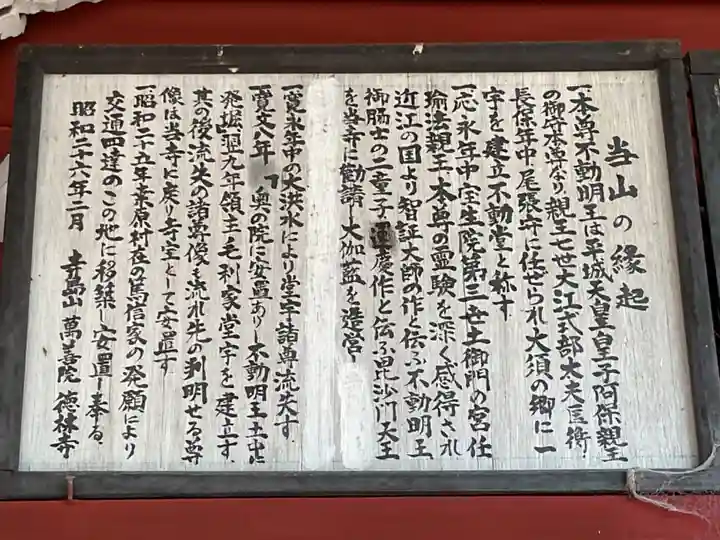 当山の縁起
一、本尊不動明王は平城天皇皇子阿保親王
の御守本尊なり親王七世大江式部大夫匡衡
長保年中尾張守に任ぜられ大須の郷に一
宇を建立不動堂と称す
一、応永年中宝生院第三世土御門の宮任
瑜法親王、本尊の霊験を深く感得され
近江の国より智証大師の作と伝ふ不動明王
御脇士の二童子運慶作と伝ふ毘沙門天王
を当寺に勧請し大伽藍を造営し
一、寛永年中の大洪水により堂宇諸尊流失す
一、寛文八年 奥の院に安置ありし不動明王土中に
発掘、翌九年領主毛利家堂宇を建立す
其の後流失の諸尊像も流れ先の判明せる尊
像は当寺に戻り寺宝として安置す
一、昭和二十五年桑原村在の篤信家の発願により
交通四達のこの地に移築し安置し奉る
昭和二十六年二月 萬善院 徳林寺